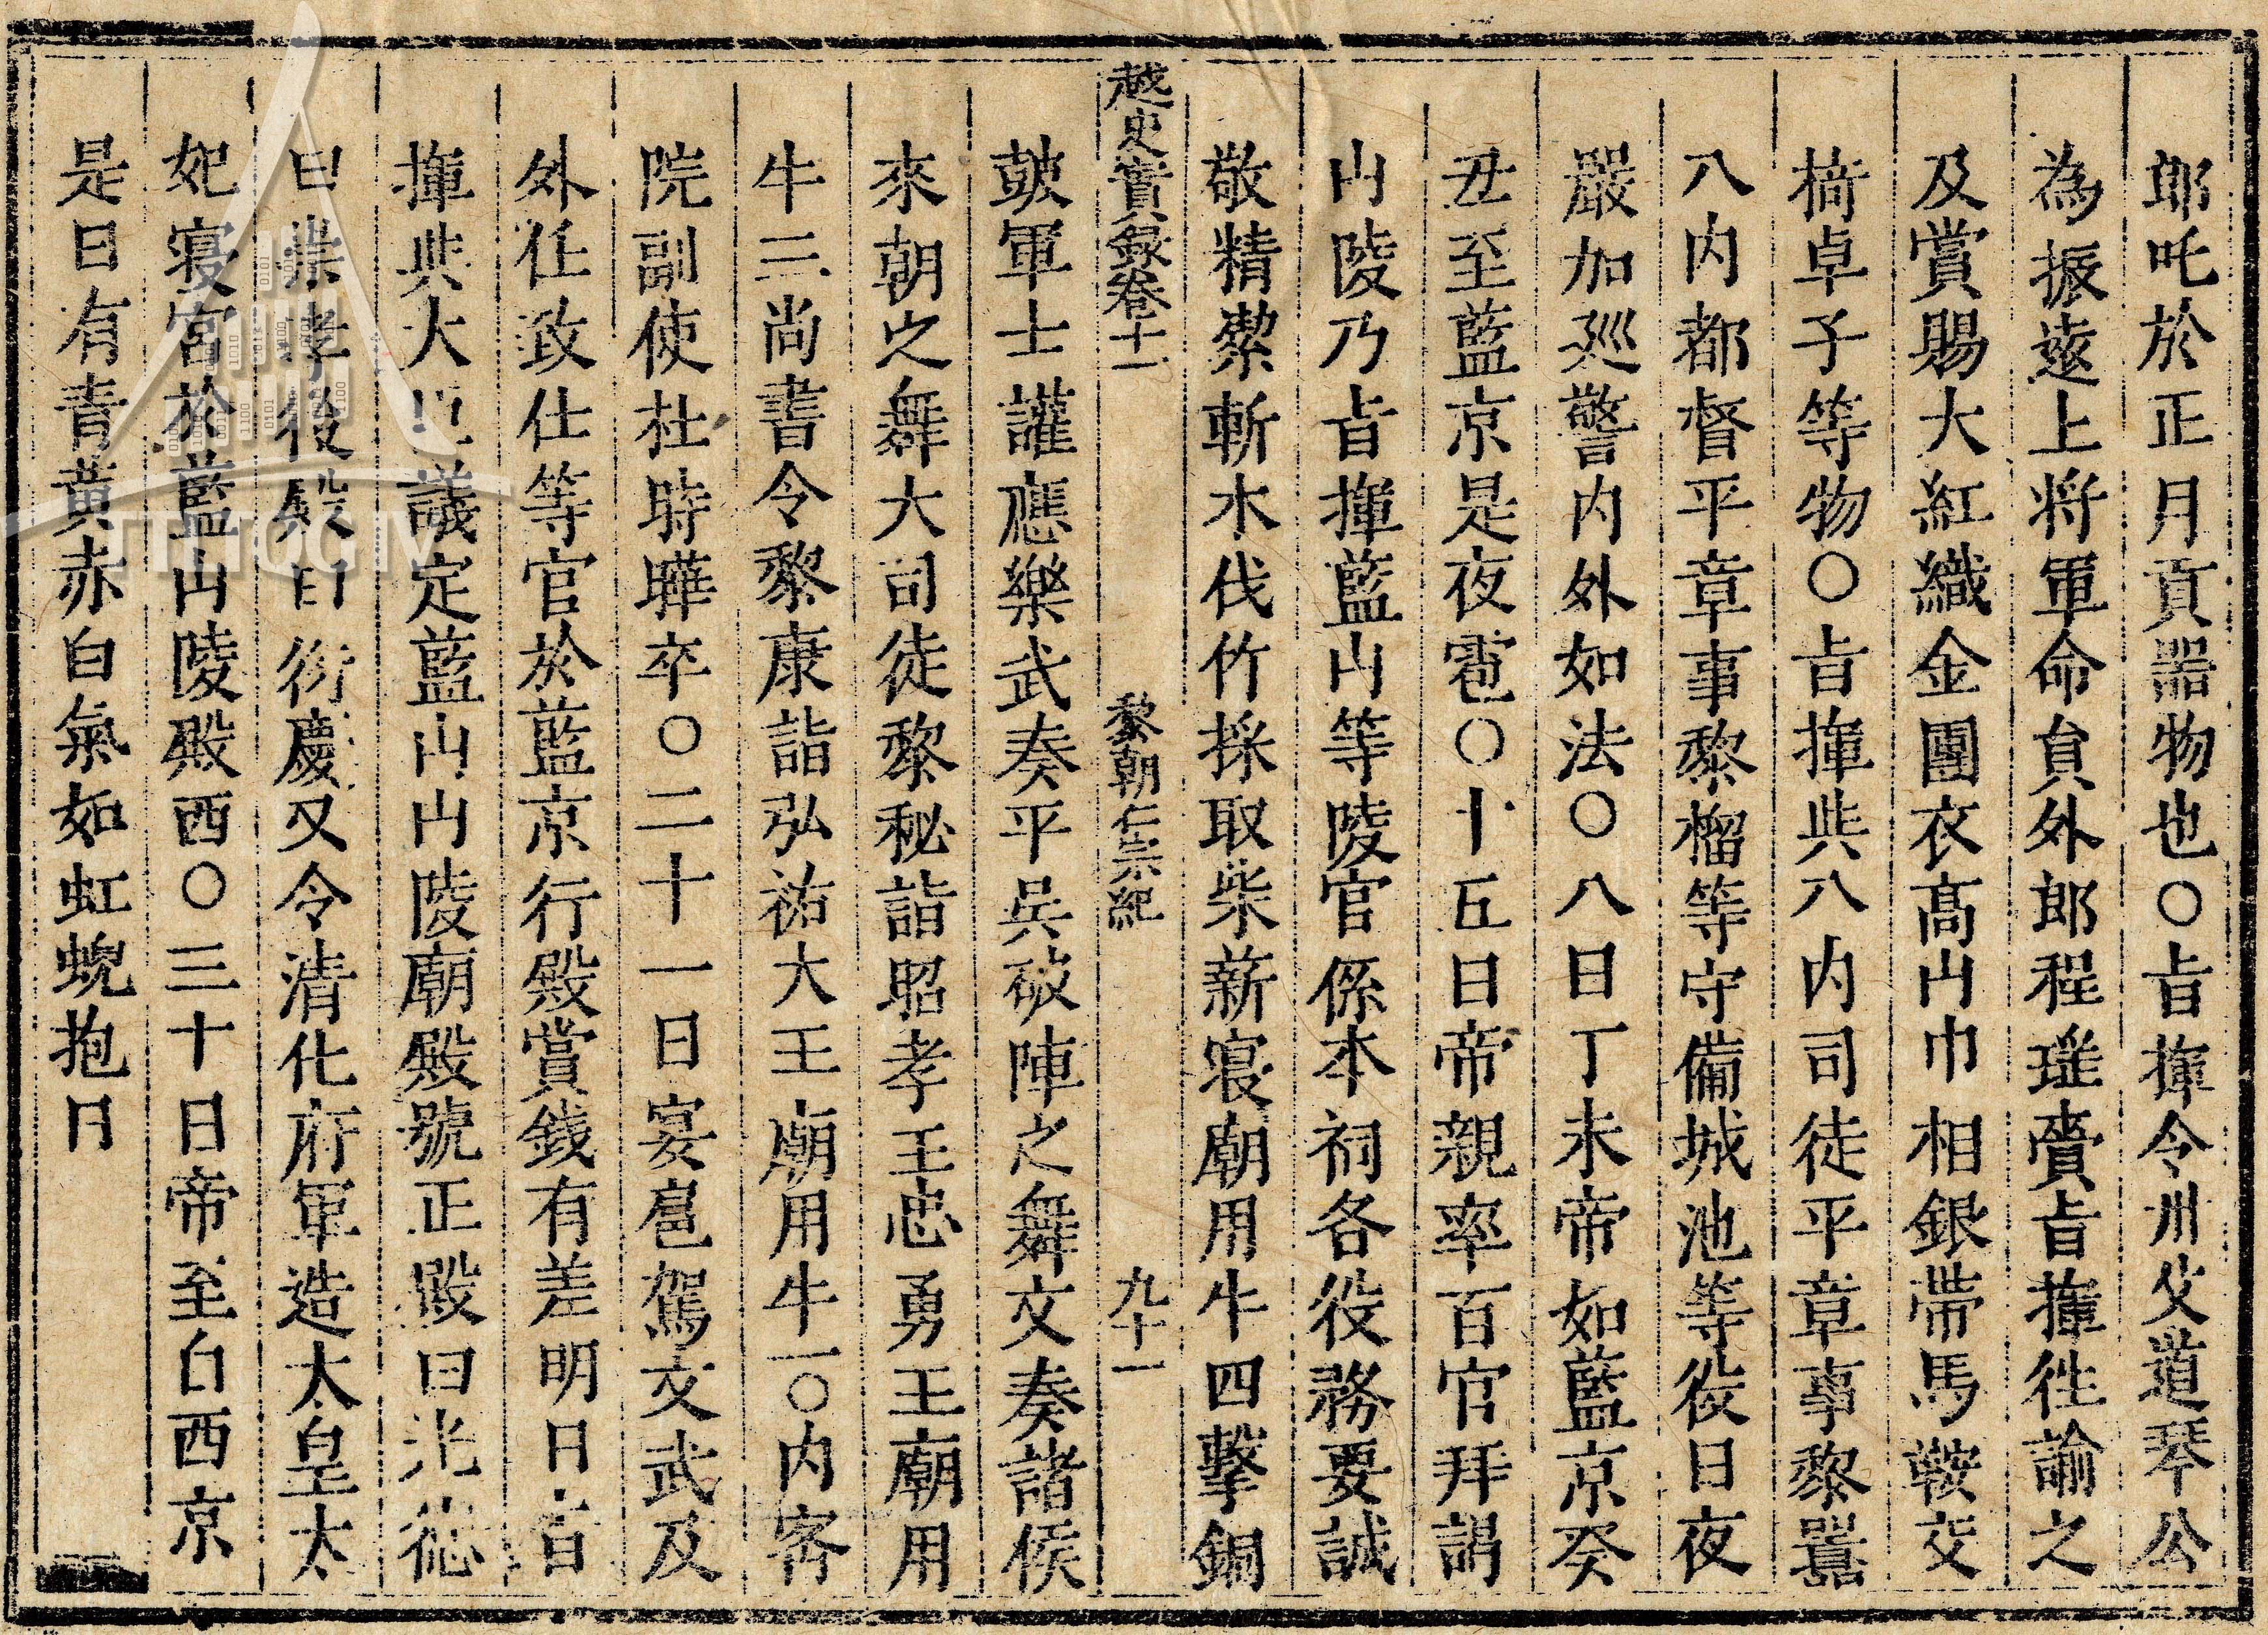 郎吒於正月貢器物也○㫖揮令州父道琴公
為振遠上将軍命貟外郎程瑤賫㫖揮徃諭之
及賞賜大紅織金團衣髙山巾相銀帶馬鞍交
椅卓子等物○㫖揮此八内司徒平章事黎囂
八内都督平章事黎榴等守備城池等役日夜
嚴加廵警内外如法○八日丁未帝如藍京癸
丑至藍京是夜雹○十五日帝親率百官拜謁
山陵乃㫖揮藍山等陵官係本祠各役務要誠
敬精潔斬木伐竹採取柴薪寢廟用牛四擊銅
越史實録卷十一 黎朝仁宗紀 九十一
皷軍士讙應樂武奏平吳破陣之舞文奏諸侯
來朝之舞大司徒黎秘詣昭孝王忠勇王廟用
牛三尚書令黎康詣弘祐大王廟用牛一○内宻
院副使杜時曄卒○二十一日宴扈駕文武及
外任致仕等官於藍京行殿賞錢有差明日㫖
揮此大臣議定藍山山陵廟殿號正殿曰光德
曰崇孝後殿曰衍慶又令清化府軍造太皇太
妃寢宮於藍山陵殿西○三十日帝至自西京
是日有青黃赤白氣如虹蜺抱日